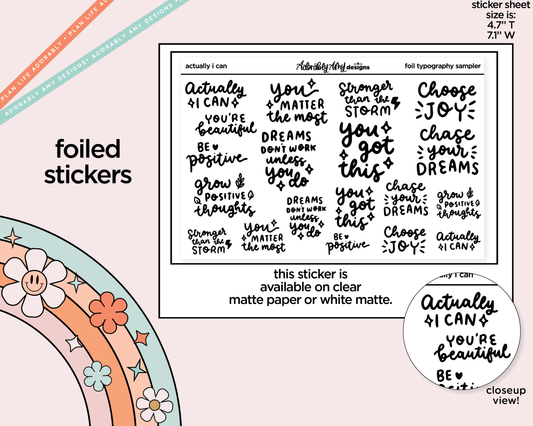 PLAN LIFE ADORABLY • PLAN LIFE ADORABLY
ADORABLY AMY DESIGNS • ADORABLY AMY DESIGNS
sticker sheet
size is:
4.7" T
7.1" W
foiled
stickers
actually i can
Adorably Amy designs
foil typography sampler
Actually
I CAN
YOU'RE
beautiful
BE
positive
grow
POSITIVE
thoughts
Stronger
than the
STORM
you
MATTER
the most
you
MATTER
the most
DREAMS
DON'T WORK
unless
you do
DREAMS
DON'T WORK
unless
you do
Stronger
than the
STORM
you
got
this
you
got
this
BE
positive
Choose
JOY
chase
your
DREAMS
chase
your
DREAMS
grow
POSITIVE
thoughts
Choose
JOY
Actually
I CAN
this sticker is
available on clear
matte paper or white matte.
y i can
Actually
I CAN
YOU'RE
beautiful
BE
closeup
view!